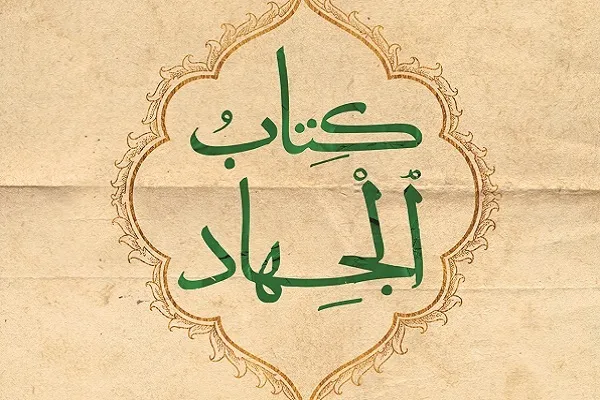 كِتابُ
الْجِهاد